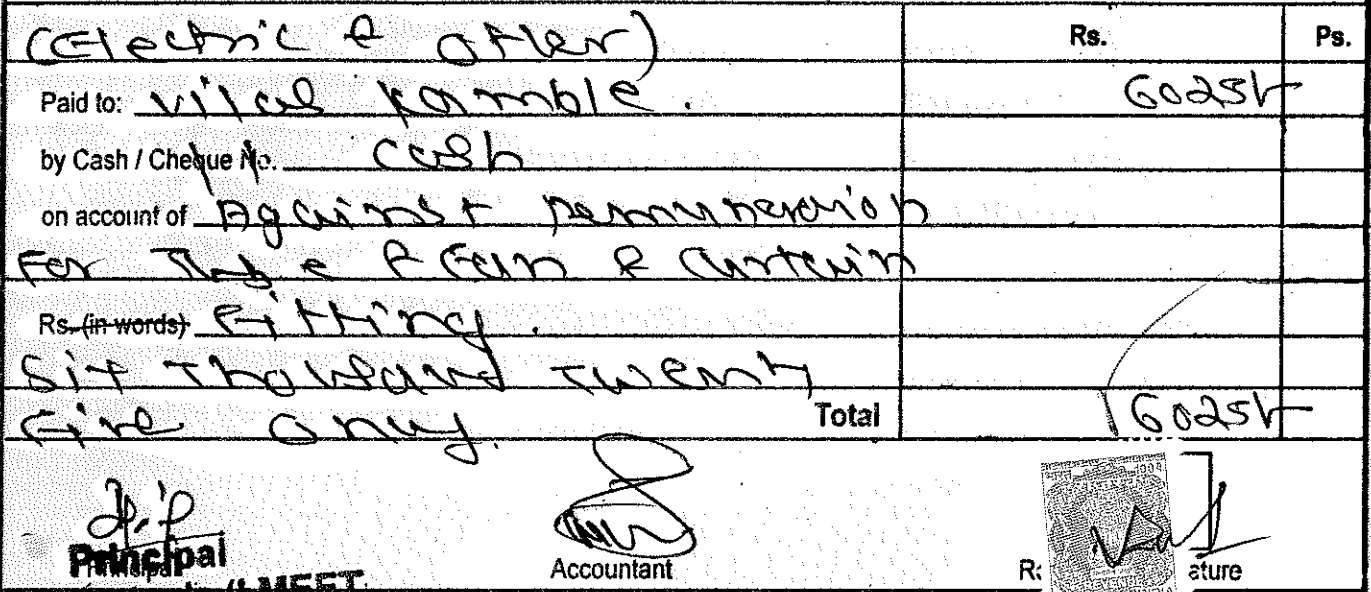 (Electric & other) Rs. Ps.
Paid to: vilas kamble. 6025/-
by Cash / Cheque No. cash
on account of Against remuneration
For Tube & Fan & Curtain
Rs. (in words) Fitting.
Six Thousand Twenty
Five Only. Total 6025/-
Principal
Accountant
ature